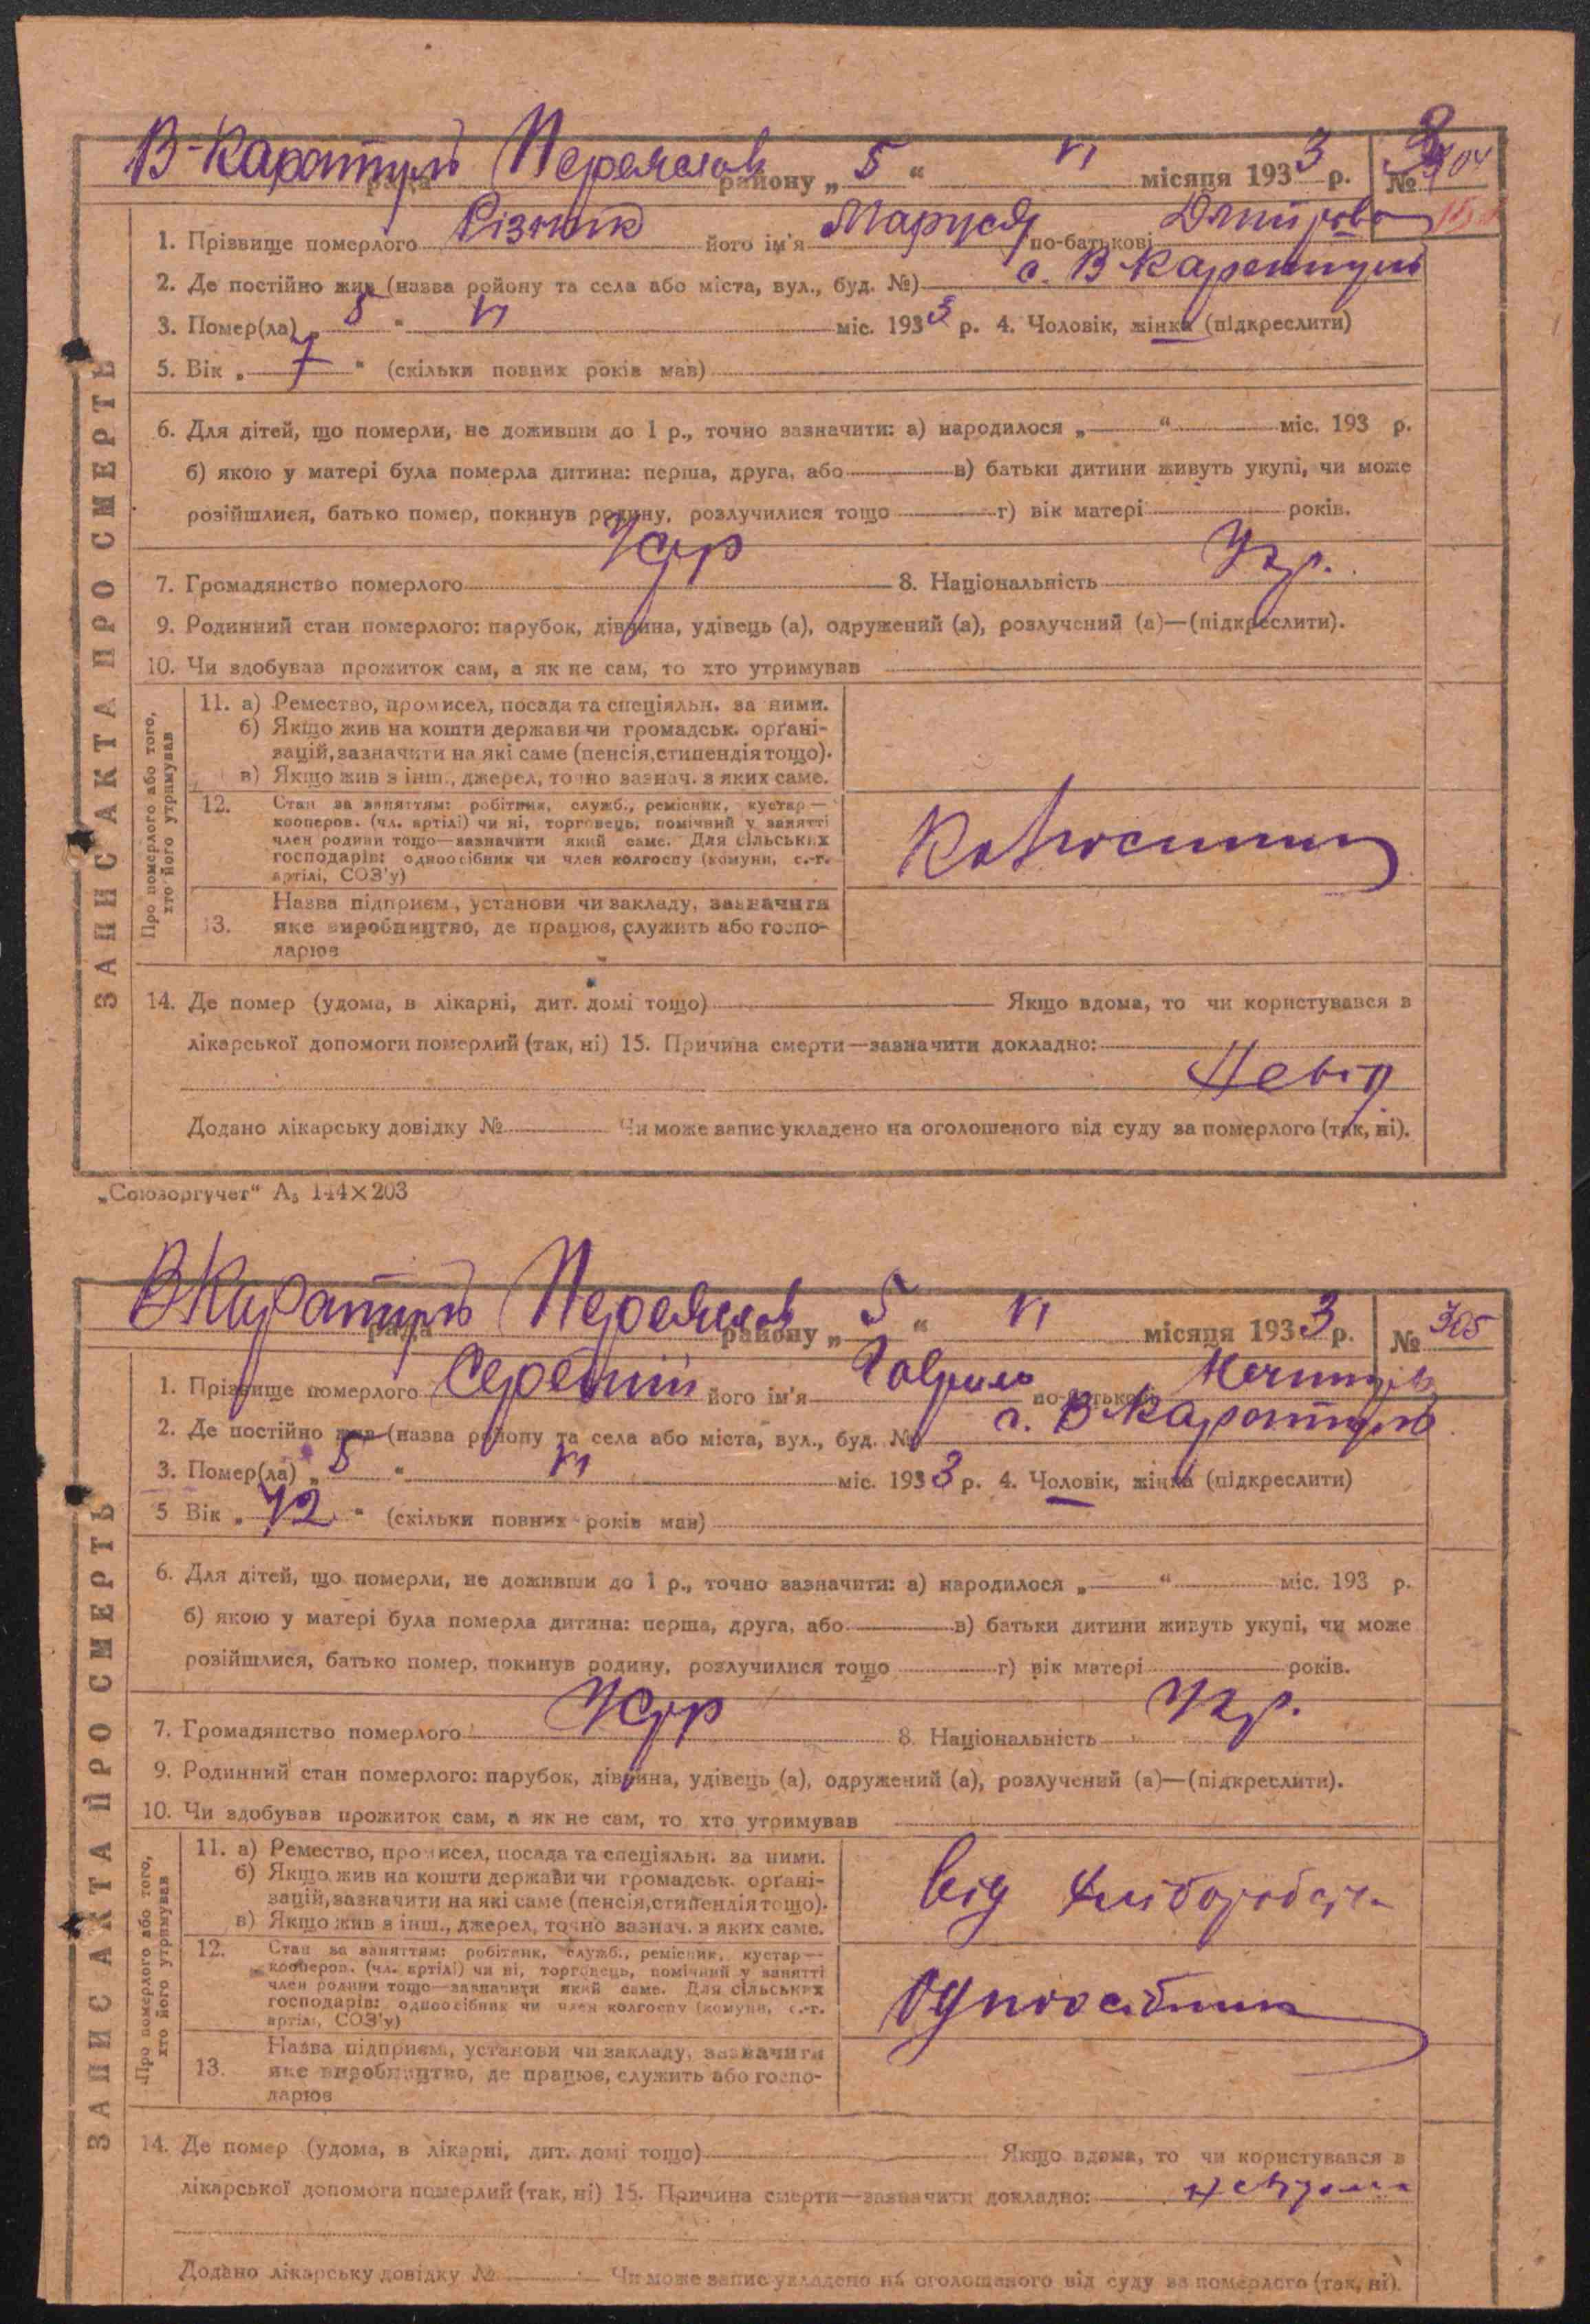 В-Каратуль рада Переяслов району „ 5 “ VI місяця 1933 р. № 704
1. Прізвище померлого Різник його ім'я Маруся по-батькові Дмитрова
2. Де постійно жив (назва району та села або міста, вул., буд. №) с. В Каратуль
3. Помер(ла) „ 5 “ VI міс. 1933 р. 4. Чоловік, жінка (підкреслити)
5. Вік „ 7 “ (скільки повних років мав)
6. Для дітей, що померли, не доживши до 1 р., точно зазначити: а) народилося „ “ міс. 193 р.
б) якою у матері була померла дитина: перша, друга, або в) батьки дитини живуть укупі, чи може
розійшлися, батько помер, покинув родину, розлучилися тощо г) вік матері років.
7. Громадянство померлого Усрр 8. Національність Укр.
9. Родинний стан померлого: парубок, дівчина, удівець (а), одружений (а), розлучений (а)—(підкреслити).
10. Чи здобував прожиток сам, а як не сам, то хто утримував
ЗАПИС АКТА ПРО СМЕРТЬ
Про померлого або того,
хто його утримував
11. а) Ремество, промисел, посада та спеціяльн. за ними.
б) Якщо жив на кошти держави чи громадськ. органі-
зацій, зазначити на які саме (пенсія, стипендія тощо).
в) Якщо жив з інш., джерел, точно зазнач. з яких саме.
12. Стан за заняттям: робітник, служб., ремісник, кустар—
кооперов. (чл. артілі) чи ні, торговець, помічний у занятті
член родини тощо—зазначити який саме. Для сільських
господарів: одноосібник чи член колгоспу (комуни, с.-г.
артілі, СОЗ'у)
Колгоспник
13. Назва підприєм., установи чи закладу, зазначити
яке виробництво, де працює, служить або госпо-
дарює
14. Де помер (удома, в лікарні, дит. домі тощо) Якщо вдома, то чи користувався з
лікарської допомоги померлий (так, ні) 15. Причина смерти—зазначити докладно:
Невід
Додано лікарську довідку № Чи може запис укладено на оголошеного від суду за померлого (так, ні).
„Союзоргучет“ А₅ 144×203
В Каратуль рада Переяслов району „ 5 “ VI місяця 1933 р. № 705
1. Прізвище померлого його ім'я Гаврило по-батькові
2. Де постійно жив (назва району та села або міста, вул., буд. № с. В Каратуль
3. Помер(ла) „ 5 “ VI міс. 1933 р. 4. Чоловік, жінка (підкреслити)
5 Вік „ 72 “ (скільки повних років мав)
6. Для дітей, що померли, не доживши до 1 р., точно зазначити: а) народилося „ “ міс. 193 р.
б) якою у матері була померла дитина: перша, друга, або в) батьки дитини живуть укупі, чи може
розійшлися, батько помер, покинув родину, розлучилися тощо г) вік матері років.
7. Громадянство померлого Усрр 8. Національність Укр.
9. Родинний стан померлого: парубок, дівчина, удівець (а), одружений (а), розлучений (а)—(підкреслити).
10. Чи здобував прожиток сам, а як не сам, то хто утримував
ЗАПИС АКТА ПРО СМЕРТЬ
Про померлого або того,
хто його утримував
11. а) Ремество, промисел, посада та спеціяльн. за ними.
б) Якщо жив на кошти держави чи громадськ. органі-
зацій, зазначити на які саме (пенсія, стипендія тощо).
в) Якщо жив з інш., джерел, точно зазнач. з яких саме.
від
12. Стан за заняттям: робітник, служб., ремісник, кустар—
кооперов. (чл. артілі) чи ні, торговець, помічний у занятті
член родини тощо—зазначити який саме. Для сільських
господарів: одноосібник чи член колгоспу (комуни, с.-г.
артілі, СОЗ'у)
Одноосібник
13. Назва підприєм., установи чи закладу, зазначити
яке виробництво, де працює, служить або госпо-
дарює
14. Де помер (удома, в лікарні, дит. домі тощо) Якщо вдома, то чи користувався з
лікарської допомоги померлий (так, ні) 15. Причина смерти—зазначити докладно: невідома
Додано лікарську довідку № Чи може запис укладено на оголошеного від суду за померлого (так, ні).